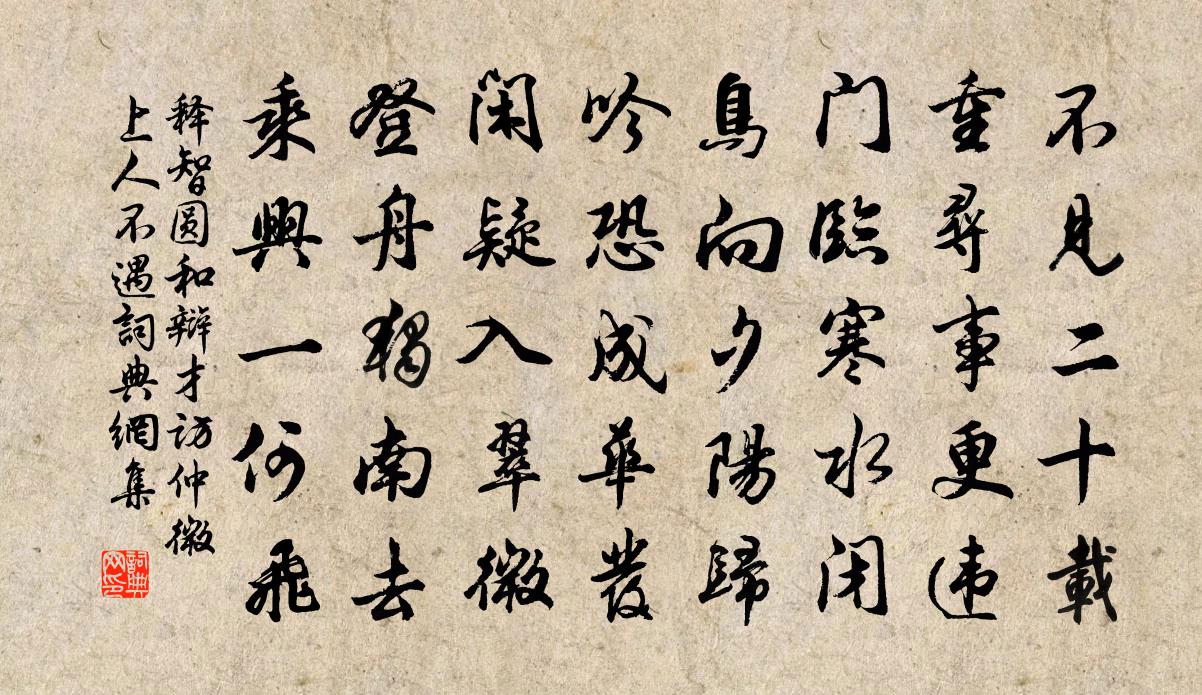 不見二十載
重尋事更违
门臨寒水闭
鳥向夕陽歸
吟恐成華發
闲疑入翠微
登舟獨南去
乘興一何飛
释智圆和辩才访仲微
上人不遇詞典網集
詞典网印